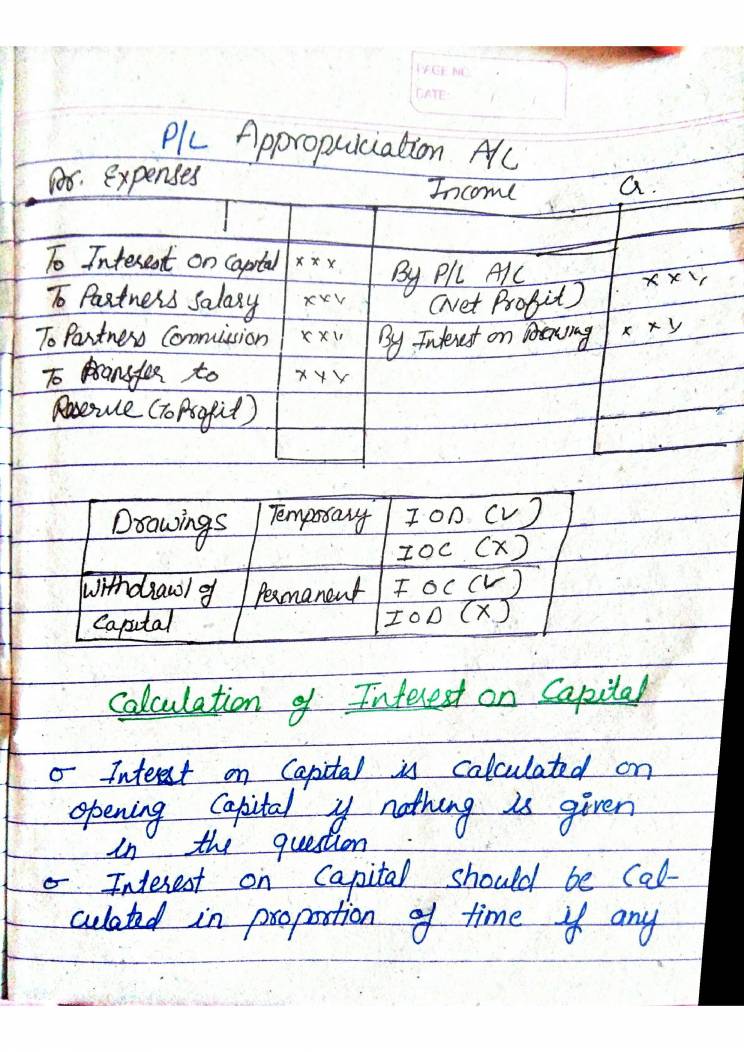 PAGE NO.
DATE: / /
P/L Appropriciation A/C
Dr. Expenses Income Cr.
To Interest on Capital xxx By P/L A/C xxx
To Partners Salary xxx (Net Profit)
To Partners Commission xxx By Interest on Drawing xxx
To Transfer to xxx
Reserve (To Profit)
Drawings Temporary IOD (✓)
IOC (X)
Withdrawl of Permanent IOC (✓)
Capital IOD (X)
Calculation of Interest on Capital
Interest on Capital is calculated on
opening Capital if nothing is given
in the question
Interest on Capital should be Cal-
culated in proportion of time if any